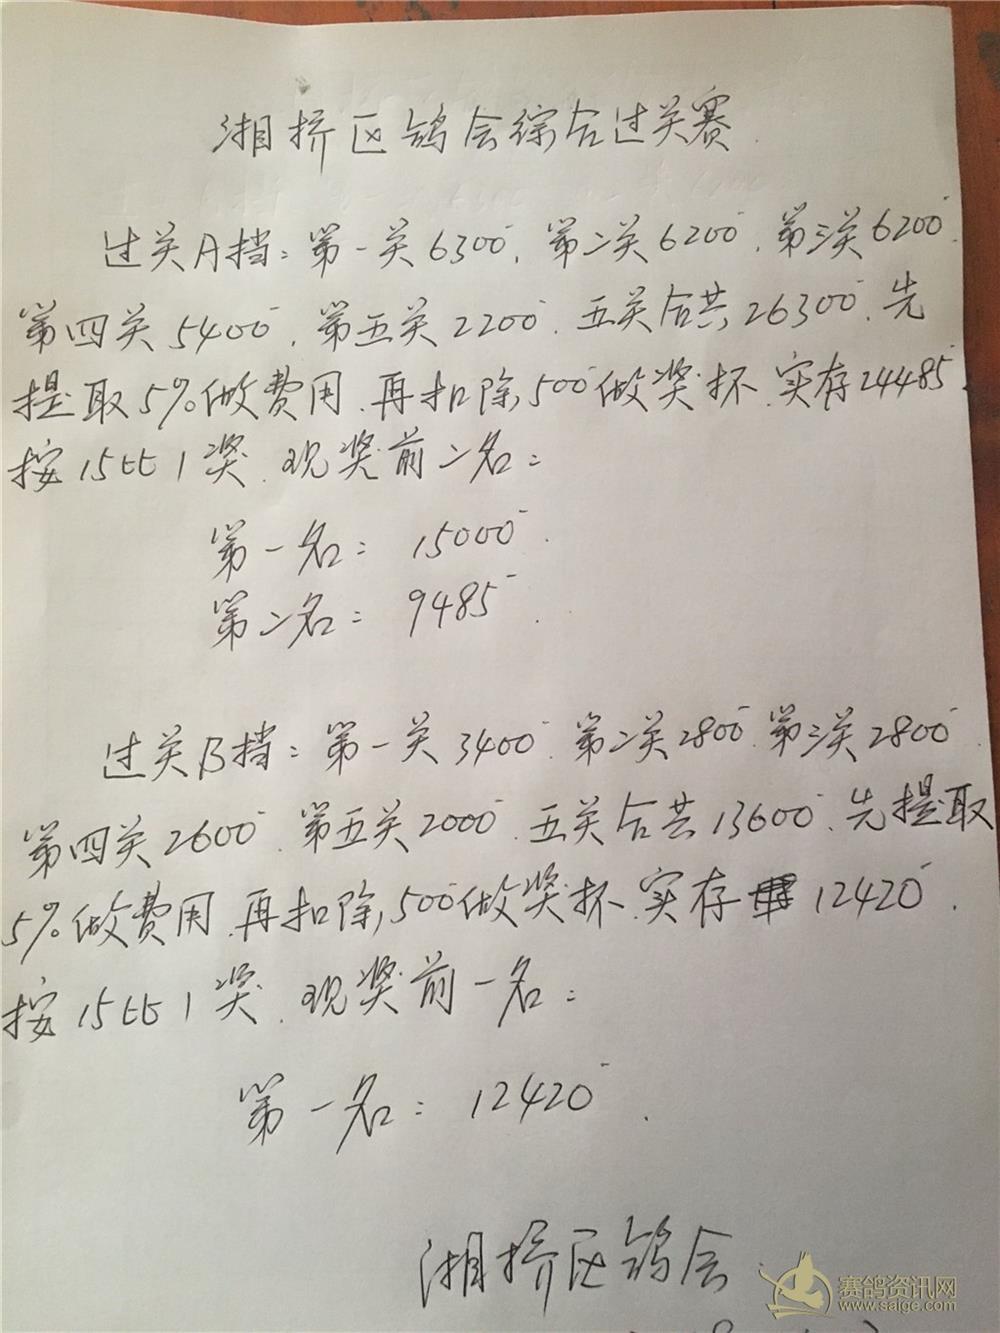 湘桥区鸽会综合过关赛
过关A挡：第一关6300.第二关6200.第三关6200.
第四关5400.第五关2200.五关合共26300.先
提取5%做费用.再扣除500做奖杯.实存24485.
按15比1奖.现奖前二名：
第一名：15000.
第二名：9485.
过关B挡：第一关3400.第二关2800.第三关2800.
第四关2600.第五关2000.五关合共13600.先提取
5%做费用.再扣除500做奖杯.实存12420.
按15比1奖.现奖前一名：
第一名：12420.
湘桥区鸽会.
赛鸽资讯网
www.saige.com